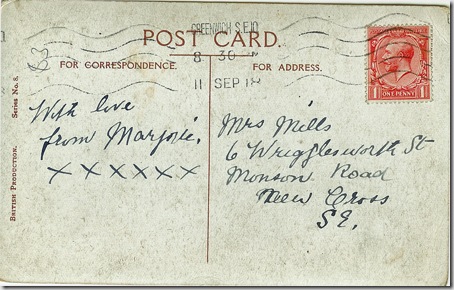 GREENWICH S.E.10
POST CARD.
8 30
11 SEP 18
83
FOR CORRESPONDENCE.
FOR ADDRESS.
ONE PENNY
1 1
Series No. 8.
British Production.
With love
from Marjorie.
x x x x x x x
Mrs Mills
6 Wrigglesworth St
Monson Road
New Cross
SE.